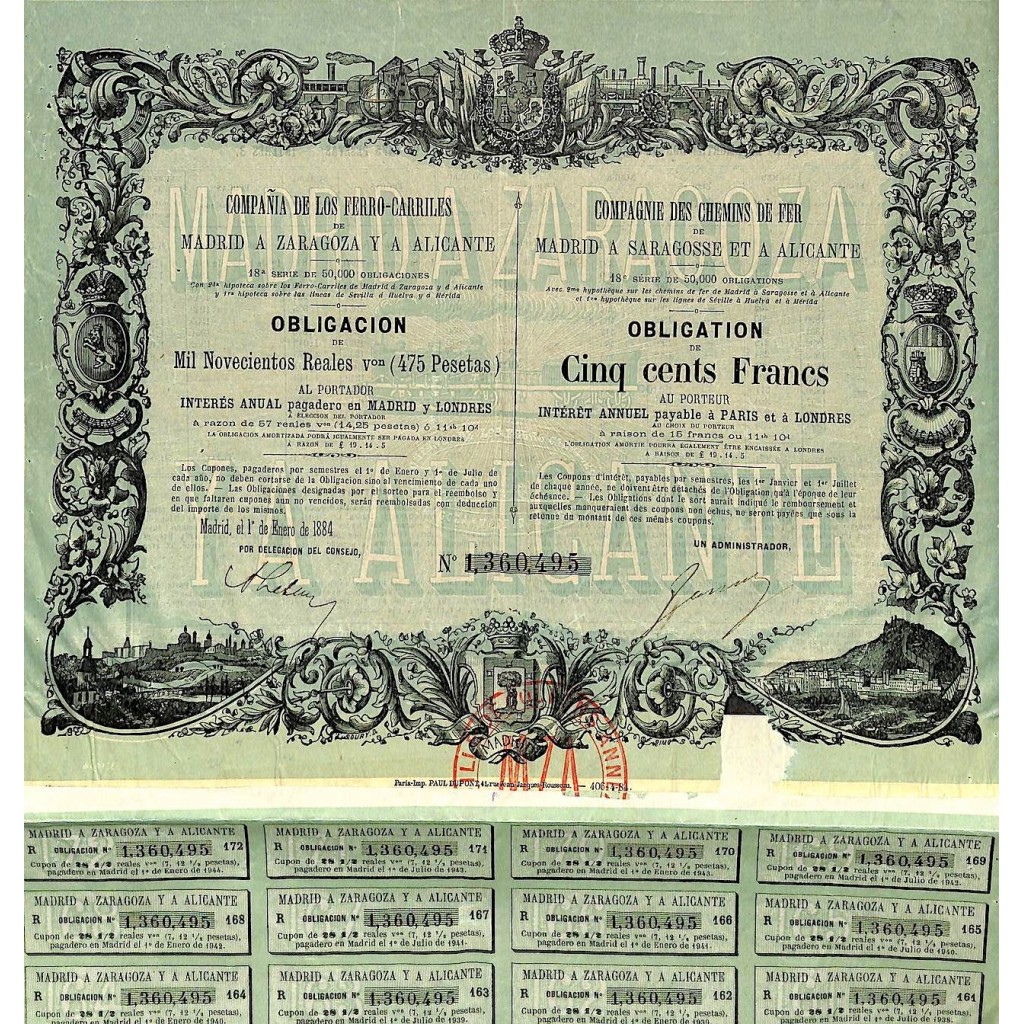 MADRID A ZARAGOZA
Y A ALICANTE
COMPAÑIA DE LOS FERRO-CARRILES
DE
MADRID A ZARAGOZA Y A ALICANTE
18ª SERIE DE 50,000 OBLIGACIONES
Con 2da hipoteca sobre los Ferro-Carriles de Madrid a Zaragoza y á Alicante
y 1ra hipoteca sobre las lineas de Sevilla á Huelva y á Mérida
OBLIGACION
DE
Mil Novecientos Reales von (475 Pesetas)
AL PORTADOR
INTERÉS ANUAL pagadero en MADRID y LONDRES
Á ELECCION DEL PORTADOR
à razon de 57 reales von (14,25 pesetas) ó 11sh 10d
LA OBLIGACION AMORTIZADA PODRÁ IGUALMENTE SER PAGADA EN LONDRES
A RAZON DE £ 19.14.5
Los Cupones, pagaderos por semestres el 1º de Enero y 1º de Julio de
cada año, no deben cortarse de la Obligacion sino al vencimiento de cada uno
de ellos. — Las Obligaciones designadas por el sorteo para el reembolso y
en que faltaren cupones aun no vencidos, serán reembolsadas con deduccion
del importe de los mismos.
Madrid, el 1º de Enero de 1884
POR DELEGACION DEL CONSEJO,
COMPAGNIE DES CHEMINS DE FER
DE
MADRID A SARAGOSSE ET A ALICANTE
18e SÉRIE DE 50,000 OBLIGATIONS
Avec 2me hypothèque sur les chemins de fer de Madrid à Saragosse et à Alicante
et 1re hypothèque sur les lignes de Séville à Huelva et à Mérida
OBLIGATION
DE
Cinq cents Francs
AU PORTEUR
INTÉRÊT ANNUEL payable à PARIS et à LONDRES
AU CHOIX DU PORTEUR
à raison de 15 francs ou 11sh 10d
L'OBLIGATION AMORTIE POURRA ÉGALEMENT ÊTRE ENCAISSÉE A LONDRES
A RAISON DE £ 19.14.5
Les Coupons d'intérêt, payables par semestres, les 1er Janvier et 1er Juillet
de chaque année, ne doivent être détachés de l'Obligation qu'à l'époque de leur
échéance. — Les Obligations dont le sort aurait indiqué le remboursement et
auxquelles manqueraient des coupons non échus, ne seront payées que sous la
retenue du montant de ces mêmes coupons.
UN ADMINISTRADOR,
Nº 1,360,495
MADRID
Paris-Imp. PAUL DUPONT, 41, rue Jean-Jacques-Rousseau. —
MADRID A ZARAGOZA Y A ALICANTE
R OBLIGACION Nº 1,360,495 172
Cupon de 28 1/2 reales von (7, 12 ½ pesetas),
pagadero en Madrid el 1º de Enero de 1944.
MADRID A ZARAGOZA Y A ALICANTE
R OBLIGACION Nº 1,360,495 171
Cupon de 28 1/2 reales von (7, 12 ½ pesetas),
pagadero en Madrid el 1º de Julio de 1943.
MADRID A ZARAGOZA Y A ALICANTE
R OBLIGACION Nº 1,360,495 170
Cupon de 28 1/2 reales von (7, 12 ½ pesetas),
pagadero en Madrid el 1º de Enero de 1943.
MADRID A ZARAGOZA Y A ALICANTE
R OBLIGACION Nº 1,360,495 169
Cupon de 28 1/2 reales von (7, 12 ½ pesetas),
pagadero en Madrid el 1º de Julio de 1942.
MADRID A ZARAGOZA Y A ALICANTE
R OBLIGACION Nº 1,360,495 168
Cupon de 28 1/2 reales von (7, 12 ½ pesetas),
pagadero en Madrid el 1º de Enero de 1942.
MADRID A ZARAGOZA Y A ALICANTE
R OBLIGACION Nº 1,360,495 167
Cupon de 28 1/2 reales von (7, 12 ½ pesetas),
pagadero en Madrid el 1º de Julio de 1941.
MADRID A ZARAGOZA Y A ALICANTE
R OBLIGACION Nº 1,360,495 166
Cupon de 28 1/2 reales von (7, 12 ½ pesetas),
pagadero en Madrid el 1º de Enero de 1941.
MADRID A ZARAGOZA Y A ALICANTE
R OBLIGACION Nº 1,360,495 165
Cupon de 28 1/2 reales von (7, 12 ½ pesetas),
pagadero en Madrid el 1º de Julio de 1940.
MADRID A ZARAGOZA Y A ALICANTE
R OBLIGACION Nº 1,360,495 164
Cupon de 28 1/2 reales von (7, 12 ½ pesetas),
pagadero en Madrid el 1º de Enero de 1940.
MADRID A ZARAGOZA Y A ALICANTE
R OBLIGACION Nº 1,360,495 163
Cupon de 28 1/2 reales von (7, 12 ½ pesetas),
pagadero en Madrid el 1º de Julio de 1939.
MADRID A ZARAGOZA Y A ALICANTE
R OBLIGACION Nº 1,360,495 162
Cupon de 28 1/2 reales von (7, 12 ½ pesetas),
pagadero en Madrid el 1º de Enero de 1939.
MADRID A ZARAGOZA Y A ALICANTE
R OBLIGACION Nº 1,360,495 161
Cupon de 28 1/2 reales von (7, 12 ½ pesetas),
pagadero en Madrid el 1º de Julio de 1938.